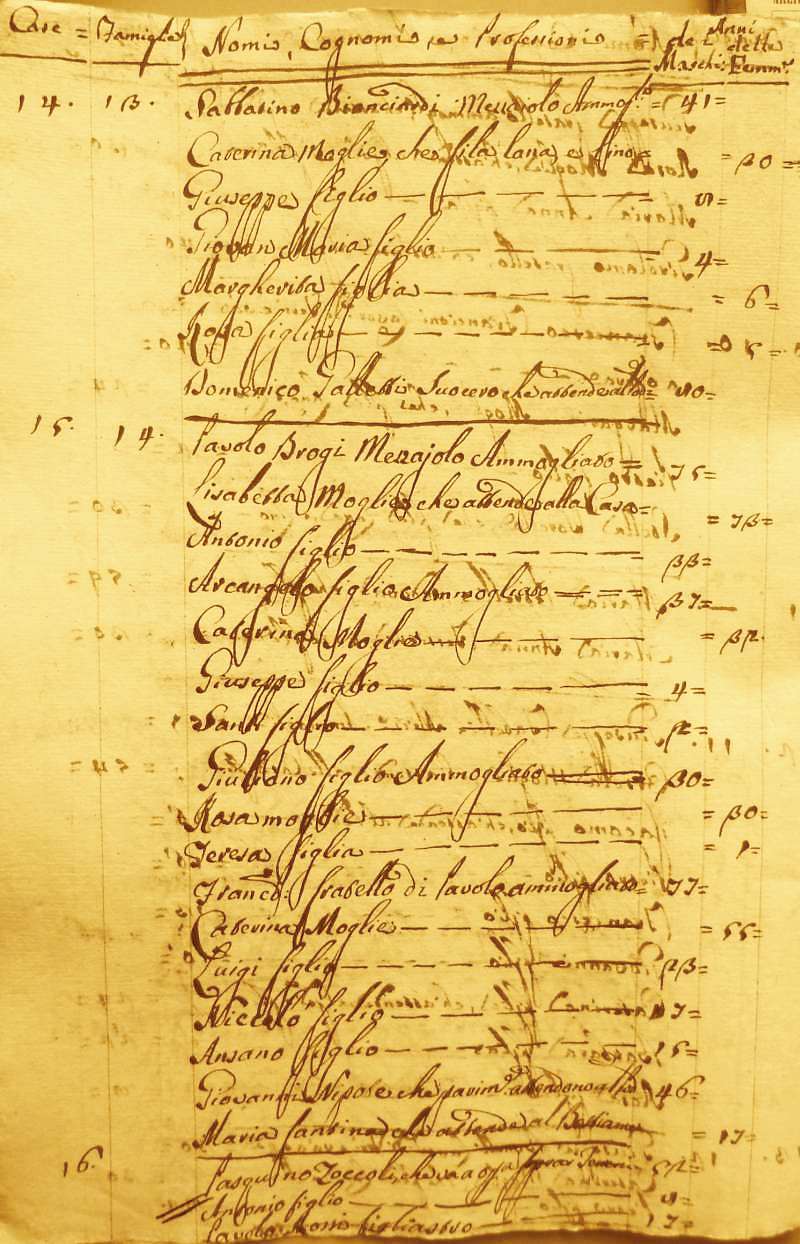 Case = Famiglie Nomi, Cognomi, e Professioni = Anni de i Maschi. delle Femm.e
14. 13. Sabbatino Bianciardi Mezzajolo Ammog.to = 41 =
Caterina Moglie, che fila lana e lino =
Giuseppe figlio
Giovan Maria figlio 4 =
Margherita figlia = 6 =
Rosa figlia
Domenico Suocero che attende
15. 14. Pavolo Brogi Mezzajolo Ammogliato = 75 =
Lisabetta Moglie che attende alla Casa = = 73 =
Antonio figlio 33 =
Arcangelo figlio Ammogliato = 37 =
Caterina Moglie = 32.
Giuseppe figlio = 4 =
Santi figlio 2 =
Giuliano figlio Ammogliato 30 =
Rosa moglie = 30 =
Teresa figlia = 1 =
Franc.o fratello di Pavolo ammogliato = 77 =
Caterina Moglie = 55 =
Luigi figlio 23 =
Niccolò figlio 17 =
Ansano figlio 15 =
Giovanni Nipote che attendono 46 =
Maria che attende al Bestiame = 17 =
16. Pasquino Zoccoli, che va a
Antonio figlio
Pavolo figliastro 17 =